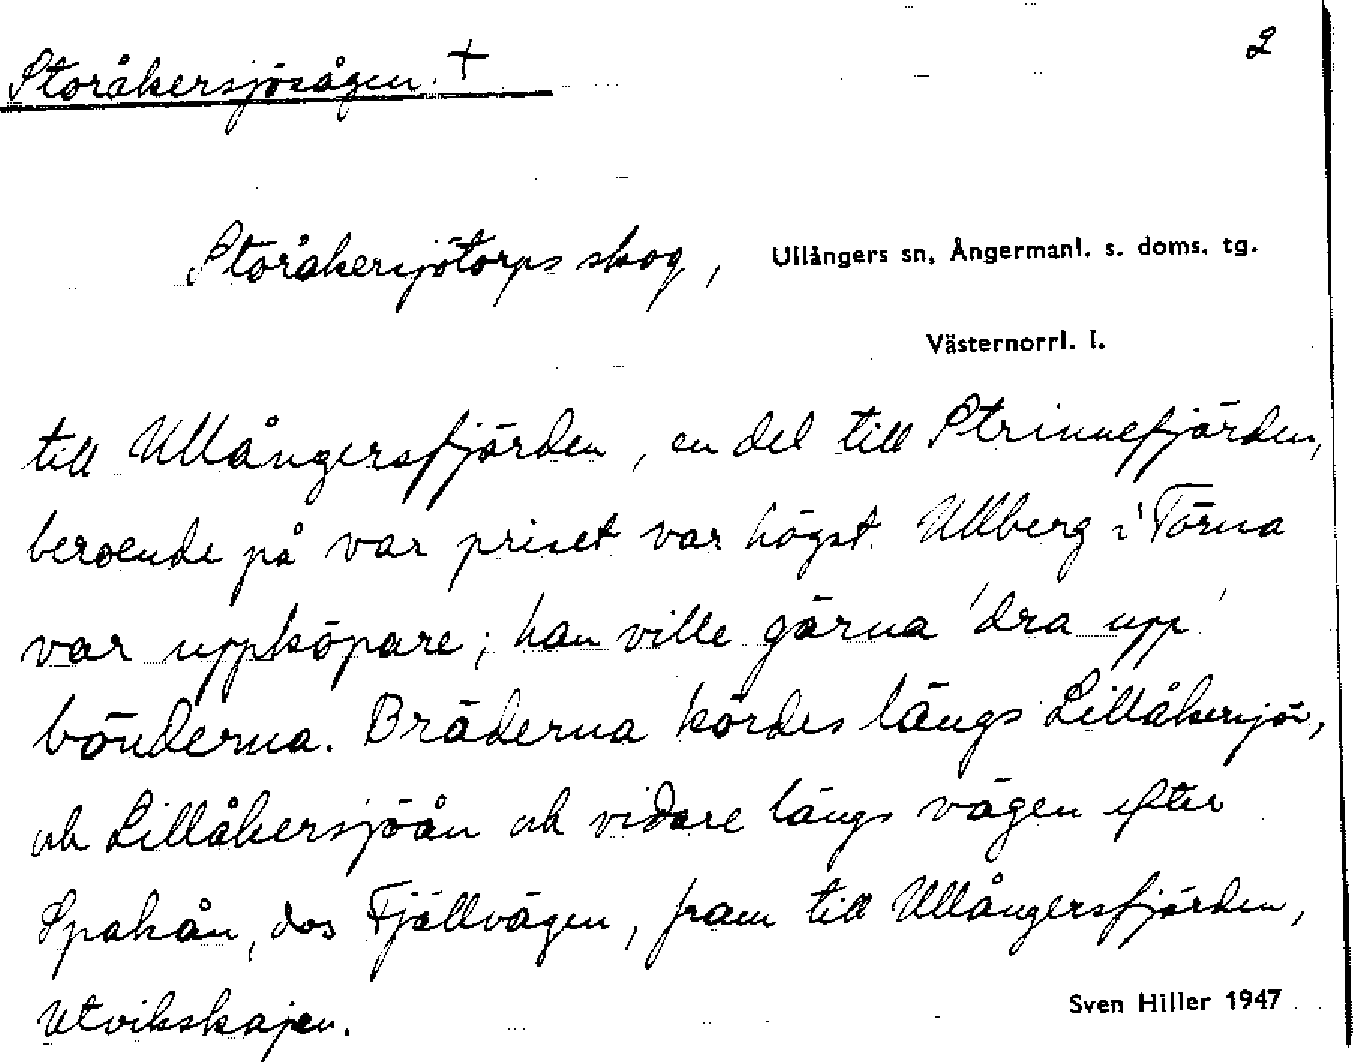 Storåkersjösågen. + 2
Storåkersjötorps skog, Ullångers sn, Ångermanl. s. doms. tg.
Västernorrl. l.
till Ullångersfjärden, en del till Strinnefjärden,
beroende på var priset var högst. Ullberg i Törna
var uppköpare; han ville gärna 'dra upp'
bönderna. Bräderna kördes längs Lillåkersjön,
och Lillåkersjöån och vidare längs vägen efter
Spakån, dvs Fjällvägen, fram till Ullångersfjärden,
Utvikskajen.
Sven Hiller 1947